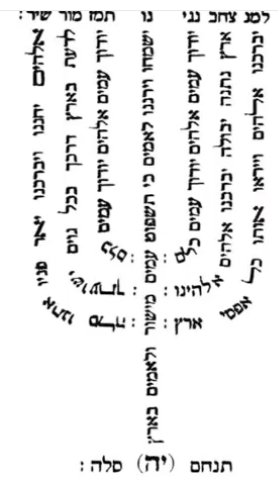 למנ צחב נגי נו תמז מור שיר:
אלהים יחננו ויברכנו יאר פניו אתנו סלה:
לדעת בארץ דרכך בכל גוים ישועתך:
יודוך עמים אלהים יודוך עמים כלם:
ישמחו וירננו לאמים כי תשפוט עמים מישור ולאמים בארץ
יודוך עמים אלהים יודוך עמים כלם:
ארץ נתנה יבולה יברכנו אלהים אלהינו:
יברכנו אלהים וייראו אותו כל אפסי ארץ:
תנחם (יה) סלה: